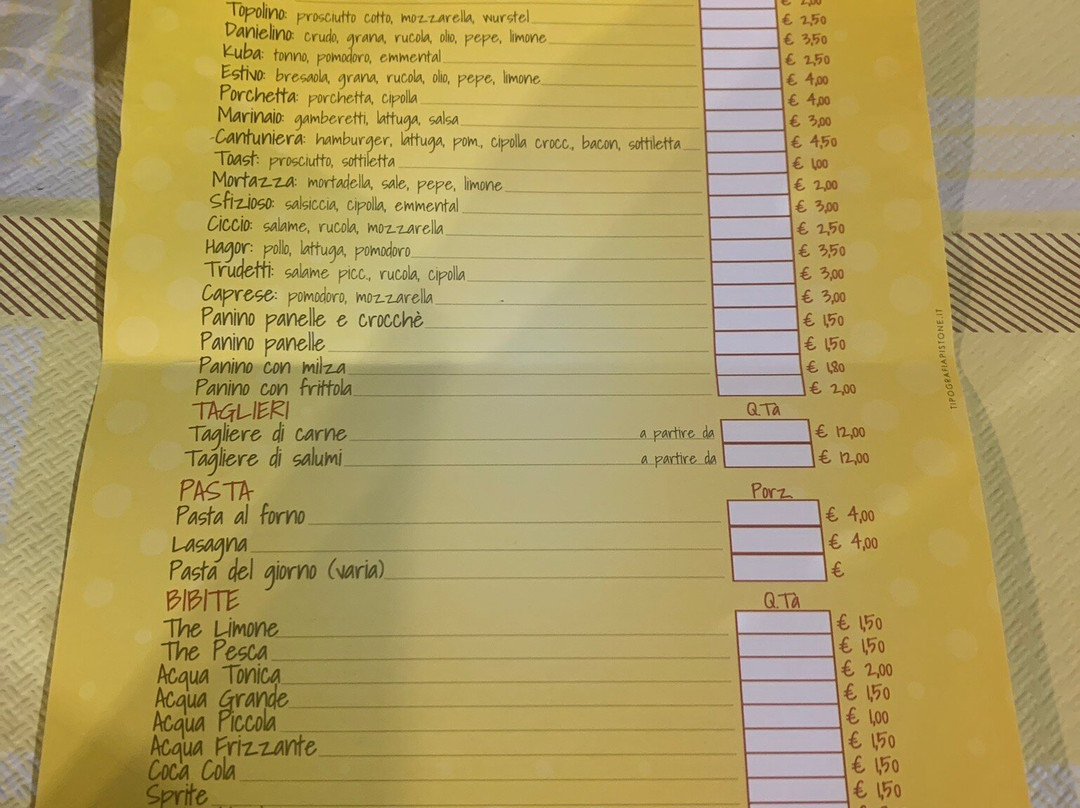 Topolino: prosciutto cotto, mozzarella, wurstel € 2,50
Danielino: crudo, grana, rucola, olio, pepe, limone € 3,50
Kuba: tonno, pomodoro, emmental € 2,50
Estivo: bresaola, grana, rucola, olio, pepe, limone € 4,00
Porchetta: porchetta, cipolla € 4,00
Marinaio: gamberetti, lattuga, salsa € 3,00
Cantuniera: hamburger, lattuga, pom., cipolla crocc., bacon, sottiletta € 4,50
Toast: prosciutto, sottiletta € 1,00
Mortazza: mortadella, sale, pepe, limone € 2,00
Sfizioso: salsiccia, cipolla, emmental € 3,00
Ciccio: salame, rucola, mozzarella € 2,50
Hagor: pollo, lattuga, pomodoro € 3,50
Trudetti: salame picc., rucola, cipolla € 3,00
Caprese: pomodoro, mozzarella € 3,00
Panino panelle e crocchè € 1,50
Panino panelle € 1,50
Panino con milza € 1,80
Panino con frittola € 2,00
TAGLIERI Q.Tà
Tagliere di carne a partire da € 12,00
Tagliere di salumi a partire da € 12,00
PASTA Porz.
Pasta al forno € 4,00
Lasagna € 4,00
Pasta del giorno (varia) €
BIBITE Q.Tà
The Limone € 1,50
The Pesca € 1,50
Acqua Tonica € 2,00
Acqua Grande € 1,50
Acqua Piccola € 1,00
Acqua Frizzante € 1,50
Coca Cola € 1,50
Sprite € 1,50
TIPOGRAFIAPISTONE.IT